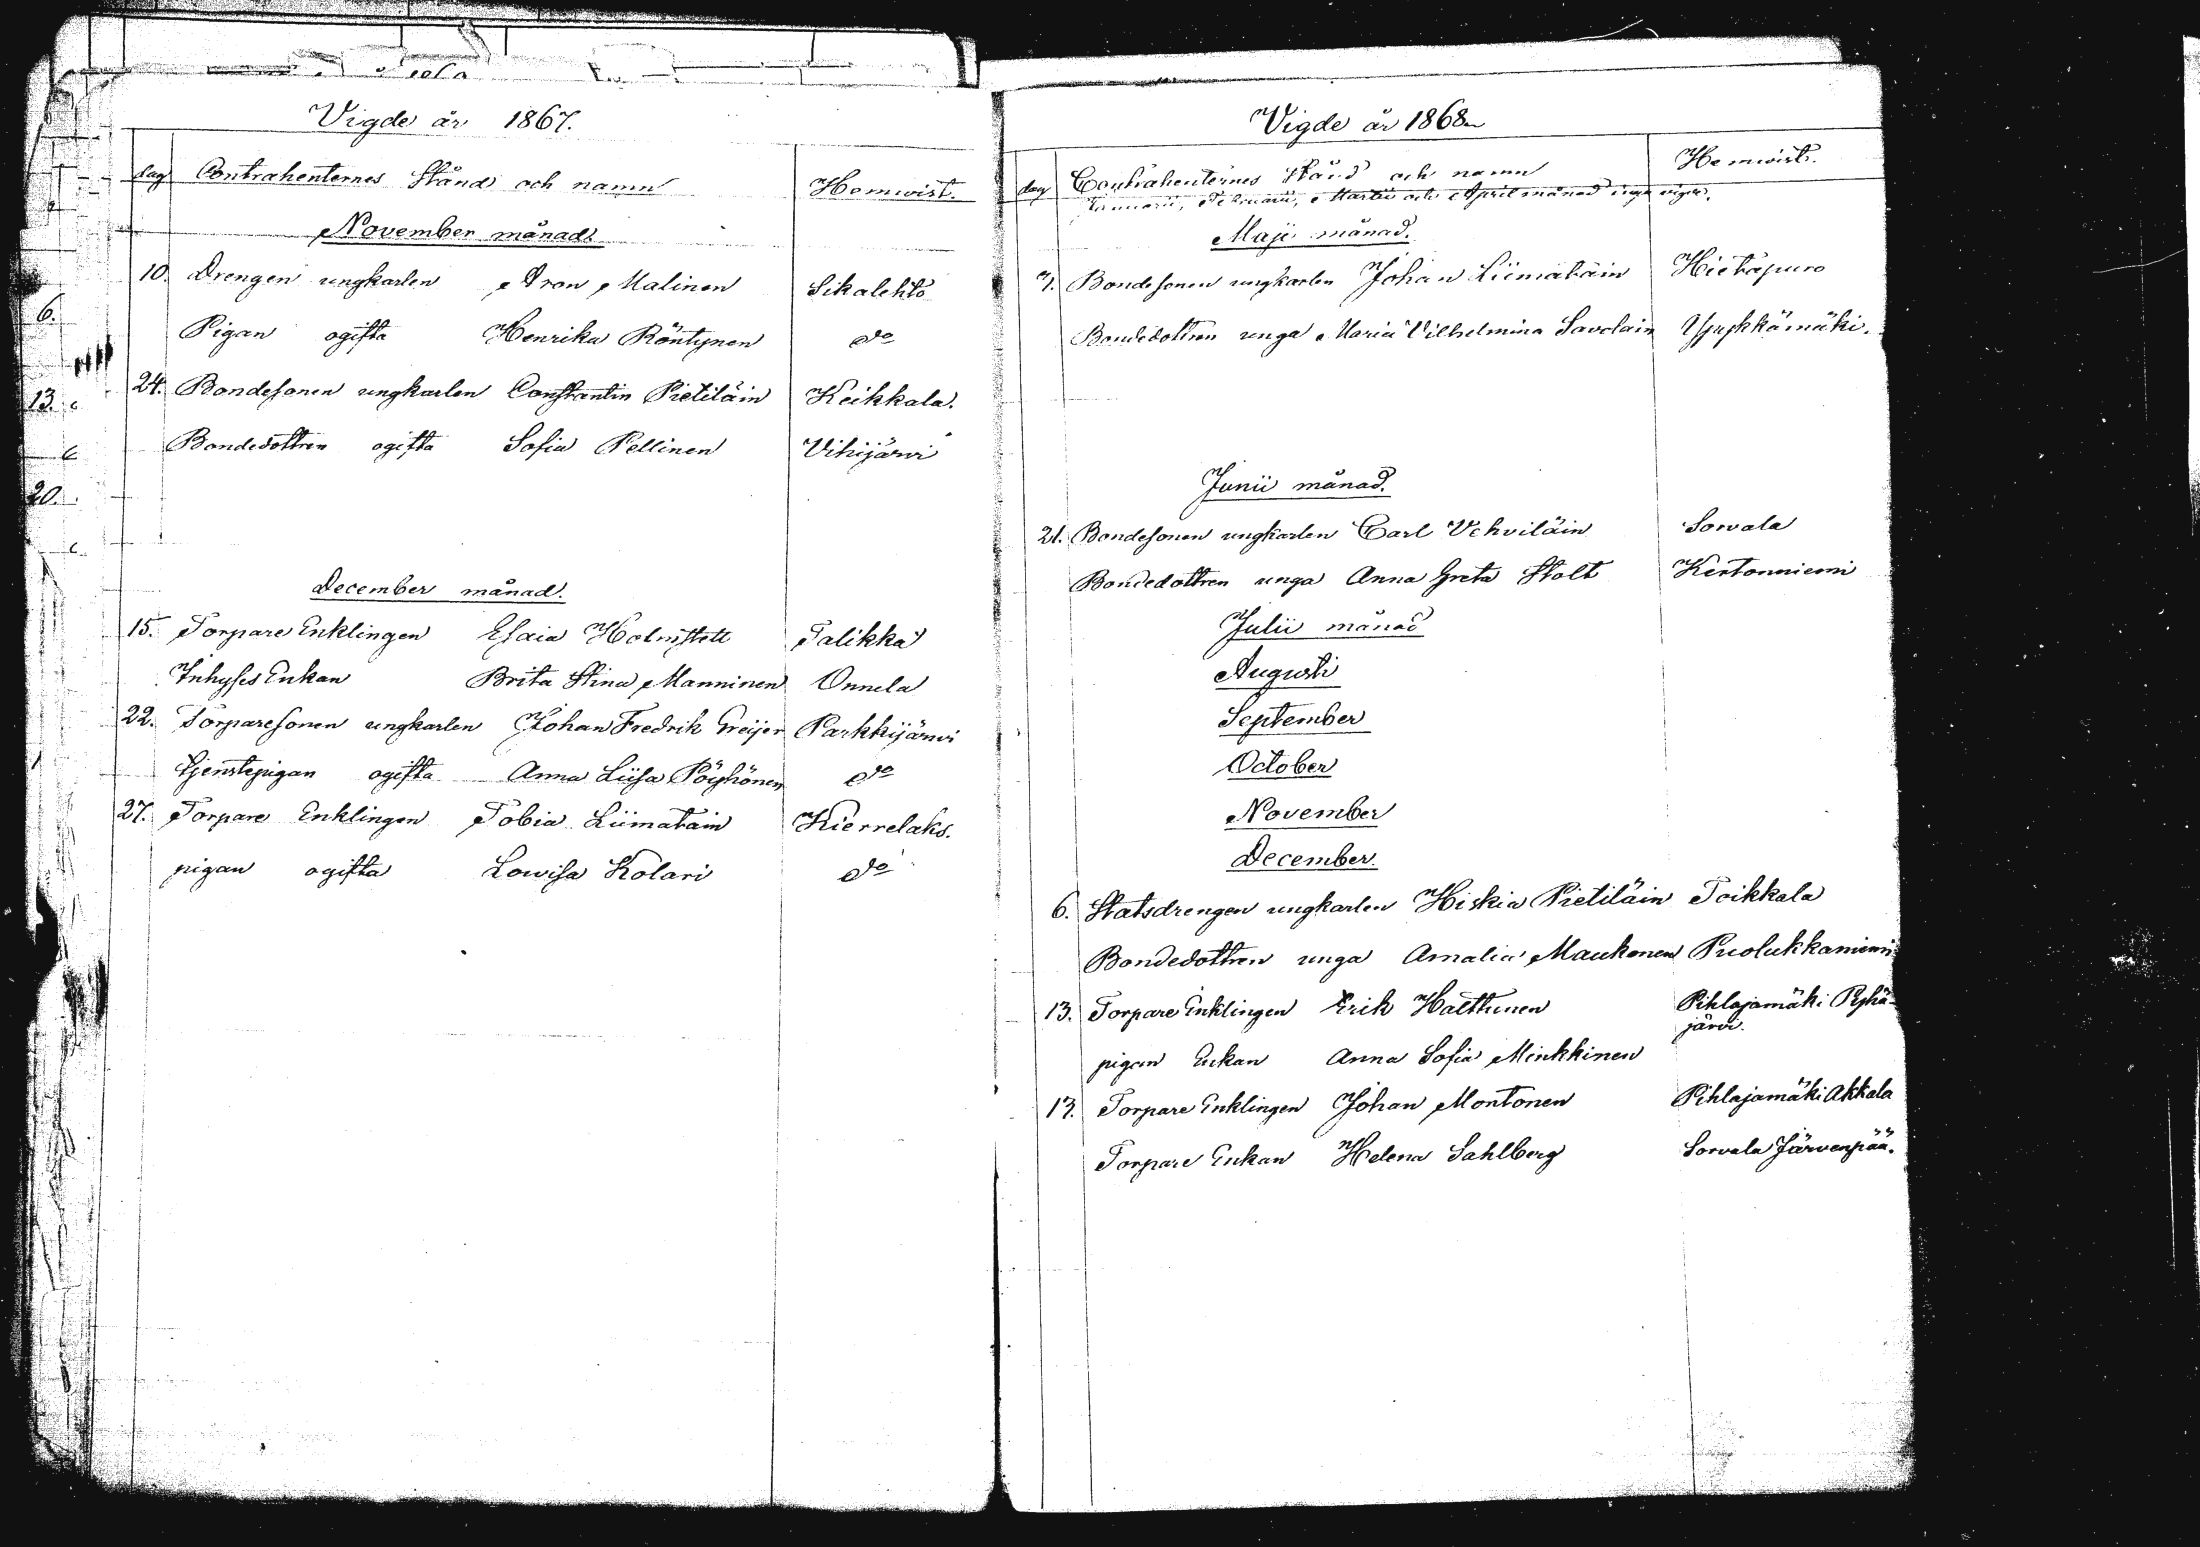 Vigde år 1867.
dag Contrahenternes Stånd och namn Hemwist.
November månad.
10. Drengen ungkarlen Aron Malinen Sikalehto
Pigan ogifta Henrika Röntynen do
24. Bondesonen ungkarlen Constantin Pietiläin Keikkala.
Bondedottren ogifta Sofia Pellinen Vihijärvi
December månad.
15. Torpare Enklingen Esaia Holmstett Talikka
Inhyses Enkan Brita Stina Manninen Onnela
22. Torparesonen ungkarlen Johan Fredrik Greijer Parkkijärvi
tjenstepigan ogifta Anna Liisa Pöyhönen do
27. Torpare Enklingen Tobia Liimatain Kierrelaks.
pigan ogifta Lowisa Kolari do
6.
13.
20.
Vigde år 1868
dag Contrahenternes Stånd och namn Hemwist.
Januarii, Februarii, Martii och April månad inga vigde.
Maji månad.
7. Bondesonen ungkarlen Johan Liimatain Hietapuro
Bondedottren unga Maria Vilhelmina Savolain
Junii månad.
21. Bondesonen ungkarlen Carl Vehviläin Sorvala
Bondedottren unga Anna Greta Stolt Kertonniemi
Julii månad
Augusti
September
October
November
December.
6. Statsdrengen ungkarlen Hiskia Pietiläin Toikkala
Bondedottren unga Amalia Maukonen Puolukkaniemi
13. Torpare Enklingen Erik Halttunen Pihlajamäki Pyhä-
järvi.
pigan Enkan Anna Sofia Minkkinen
13. Torpare Enklingen Johan Montonen Pihlajamäki Akkala
Torpare Enkan Helena Sahlberg Sorvala Järvenpää.